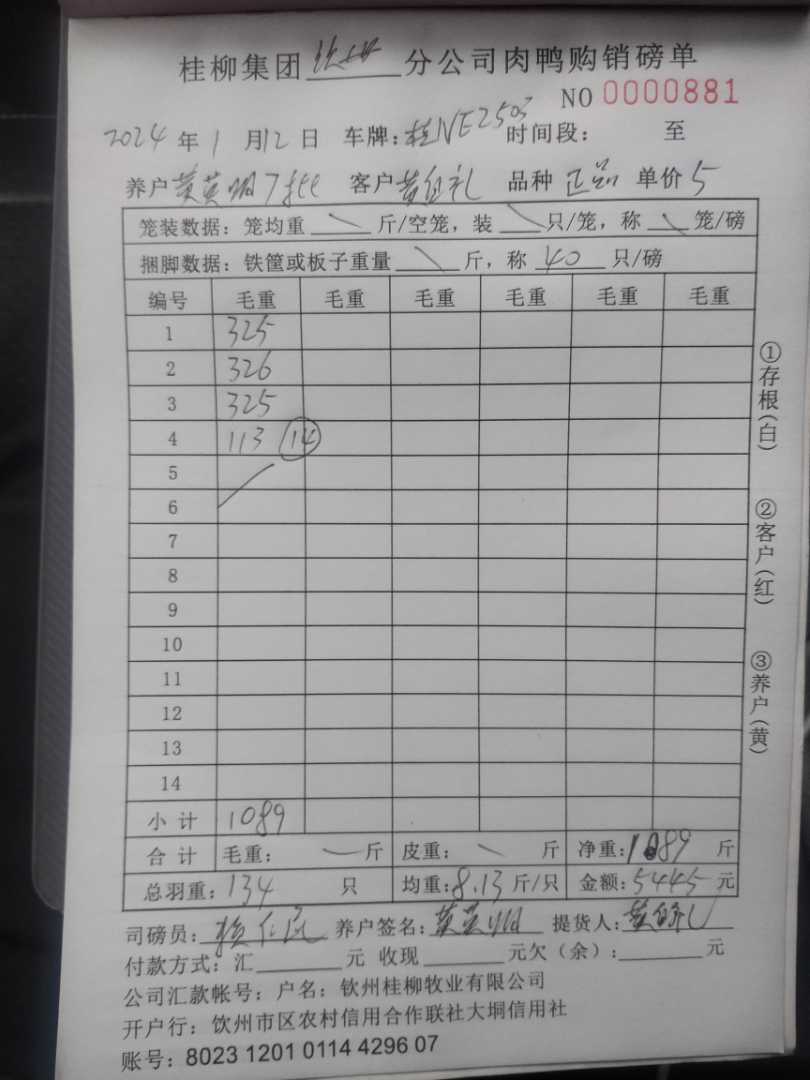 桂柳集团 钦州 分公司肉鸭购销磅单
NO 0000881
2024 年 1 月 12 日 车牌: 桂NE2503 时间段: 至
养户 黄英 客户 黄 礼 品种 正品 单价 5
笼装数据: 笼均重 斤/空笼, 装 只/笼, 称 笼/磅
捆脚数据: 铁筐或板子重量 斤, 称 40 只/磅
编号 毛重 毛重 毛重 毛重 毛重 毛重
1 325
2 326
3 325
4 113 14
5
6
7
8
9
10
11
12
13
14
小 计 1089
合 计 毛重: 斤 皮重: 斤 净重: 1089 斤
总羽重: 134 只 均重: 8.13 斤/只 金额: 5445 元
司磅员: 养户签名: 黄英 提货人: 黄
付款方式: 汇 元 收现 元欠（余）: 元
公司汇款帐号: 户名: 钦州桂柳牧业有限公司
开户行: 饮州市区农村信用合作联社大垌信用社
账号: 8023 1201 0114 4296 07
①存根(白)
②客户(红)
③养户(黄)